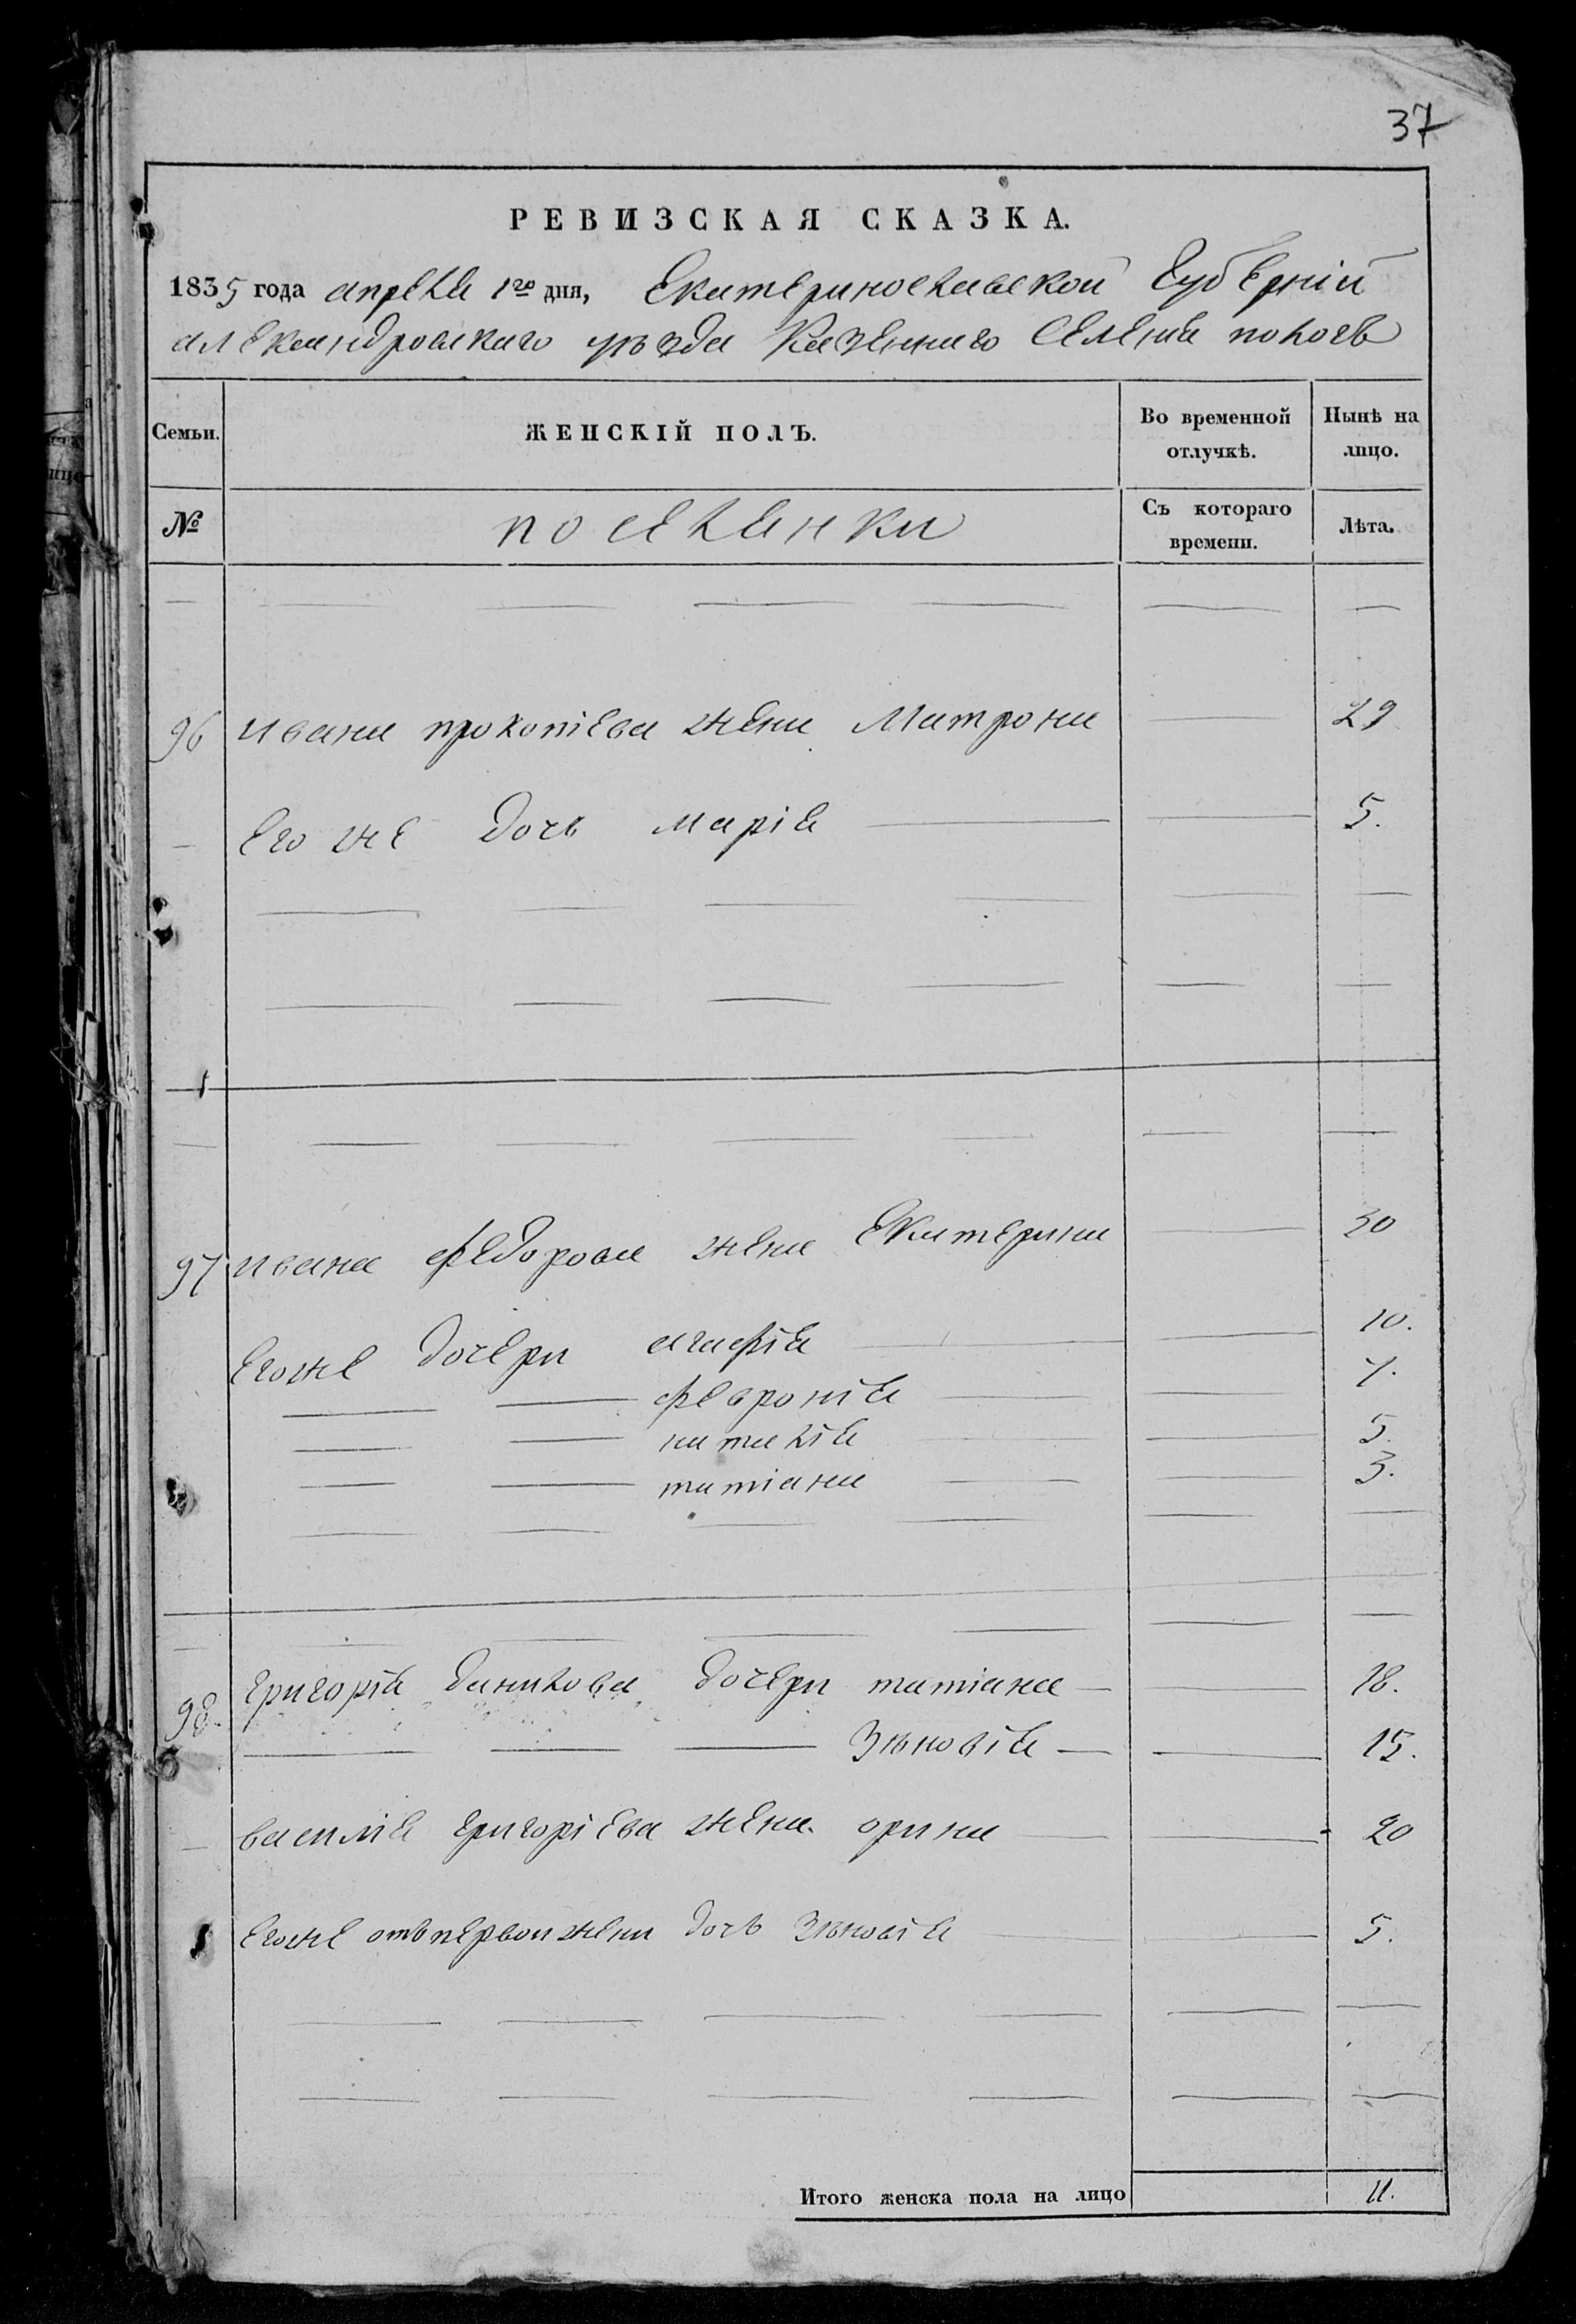 37
РЕВИЗСКАЯ СКАЗКА.
1835 года апреля 1го дня, Екатеринославской Губернїй
александровскаго уѣзда Казеннаго Селения пологъ
Семьи. ЖЕНСКІЙ ПОЛЪ. Во временной отлучкѣ. Нынѣ на лицо.
№ поселянки Съ котораго времени. Лѣта.
96 ивана прокопіева жена Матрона 29
Его же дочь маріа 5.
97 ивана федорова жена Екатерина 30
Егоже дочери агафіа 10.
февроніа 7.
наталіа 5.
татіана 3.
98. григоріа данилова дочери татіана 18.
Зѣновіа 15.
василіа григоріева жена орина 20
Егоже отъ первои жени дочь Зѣновіа 5.
Итого женска пола на лицо 11.